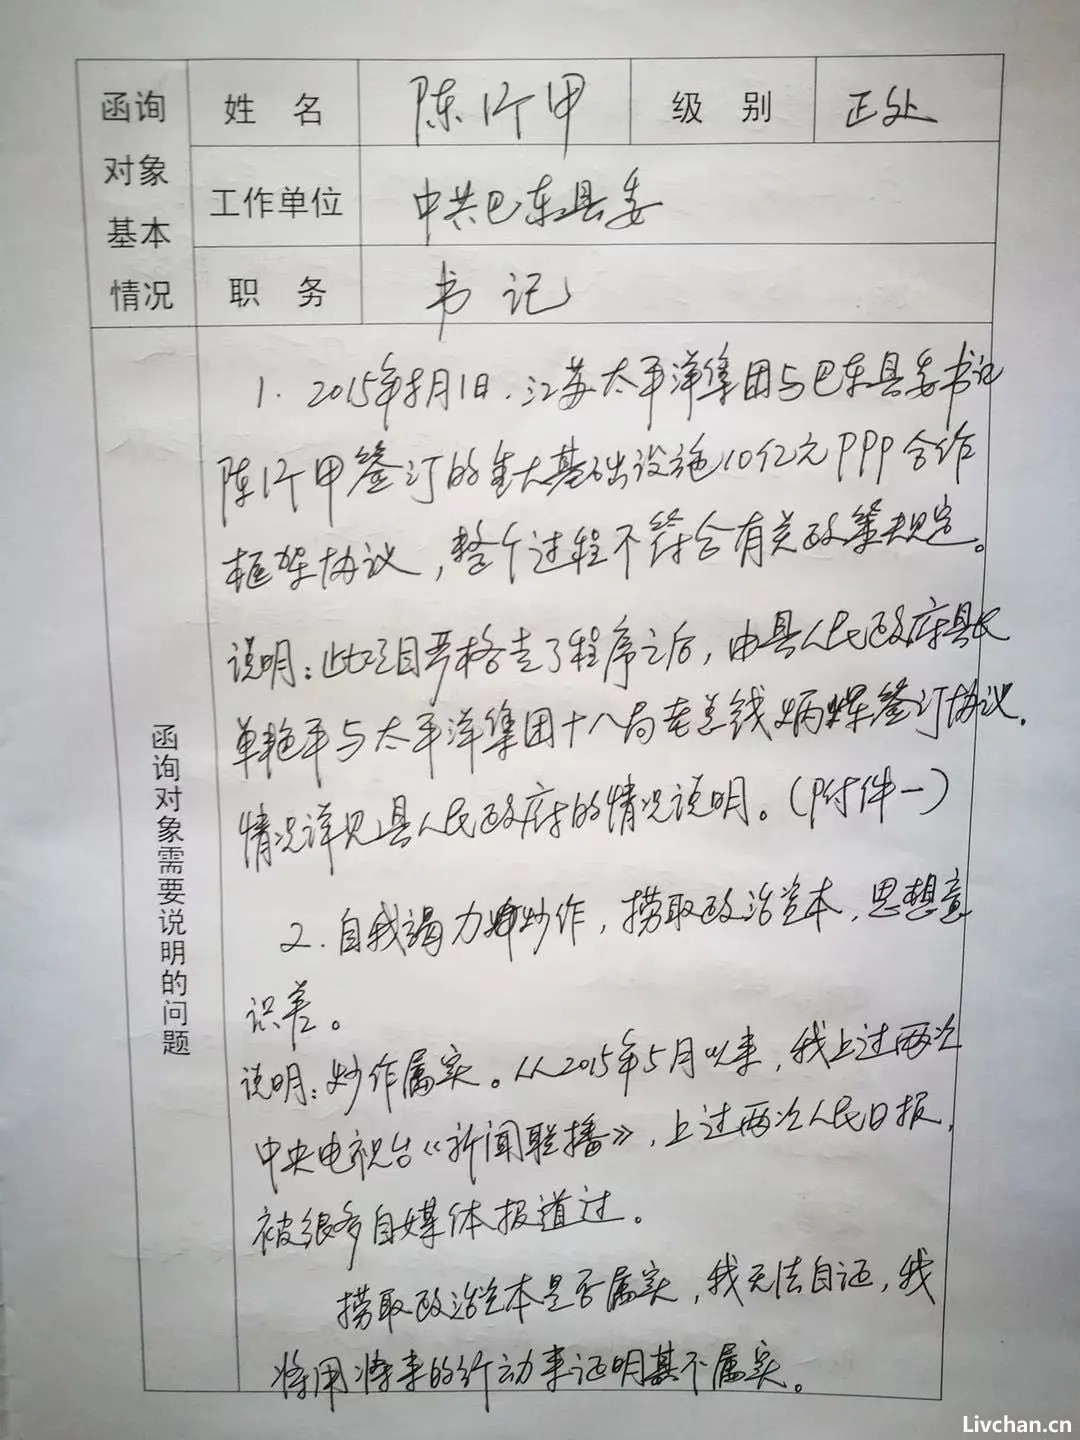 函询对象基本情况
姓 名 陈行甲 级 别 正处
工作单位 中共巴东县委
职 务 书记
函询对象需要说明的问题
1. 2015年8月1日，江苏太平洋集团与巴东县委书记
陈行甲签订的重大基础设施10亿元PPP合作
框架协议，整个过程不符合有关政策规定。
说明：此项目严格走了程序之后，由县人民政府县长
单艳平与太平洋集团十八局老总钱炳煤签订协议.
情况详见县人民政府的情况说明。（附件一）
2. 自我竭力炒作，捞取政治资本，思想意
识差。
说明：炒作属实。从2015年5月以来，我上过两次
中央电视台《新闻联播》，上过两次人民日报，
被很多自媒体报道过。
捞取政治资本是否属实，我无法自证，我
将用将来的行动来证明其不属实。
Livchan.cn